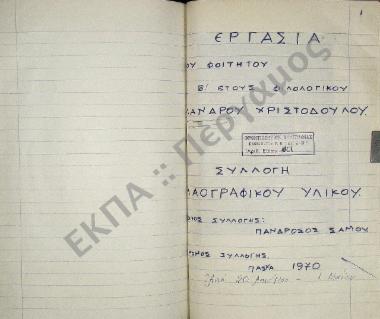 1
ΕΡΓΑΣΙΑ
ΟΥ ΦΟΙΤΗΤΟΥ
Β' ΕΤΟΥΣ ΦΙΛΟΛΟΓΙΚΟΥ
ΑΝΔΡΟΥ ΧΡΙΣΤΟΔΟΥΛΟΥ.
ΣΥΛΛΟΓΗ
ΛΑΟΓΡΑΦΙΚΟΥ ΥΛΙΚΟΥ.
ΣΥΛΛΟΓΗΣ:
ΠΑΝΔΡΟΣΟΣ ΣΑΜΟΥ
ΣΥΛΛΟΓΗΣ.
ΠΑΣΧΑ 1970
ΕΚΠΑ :: Πέργαμος